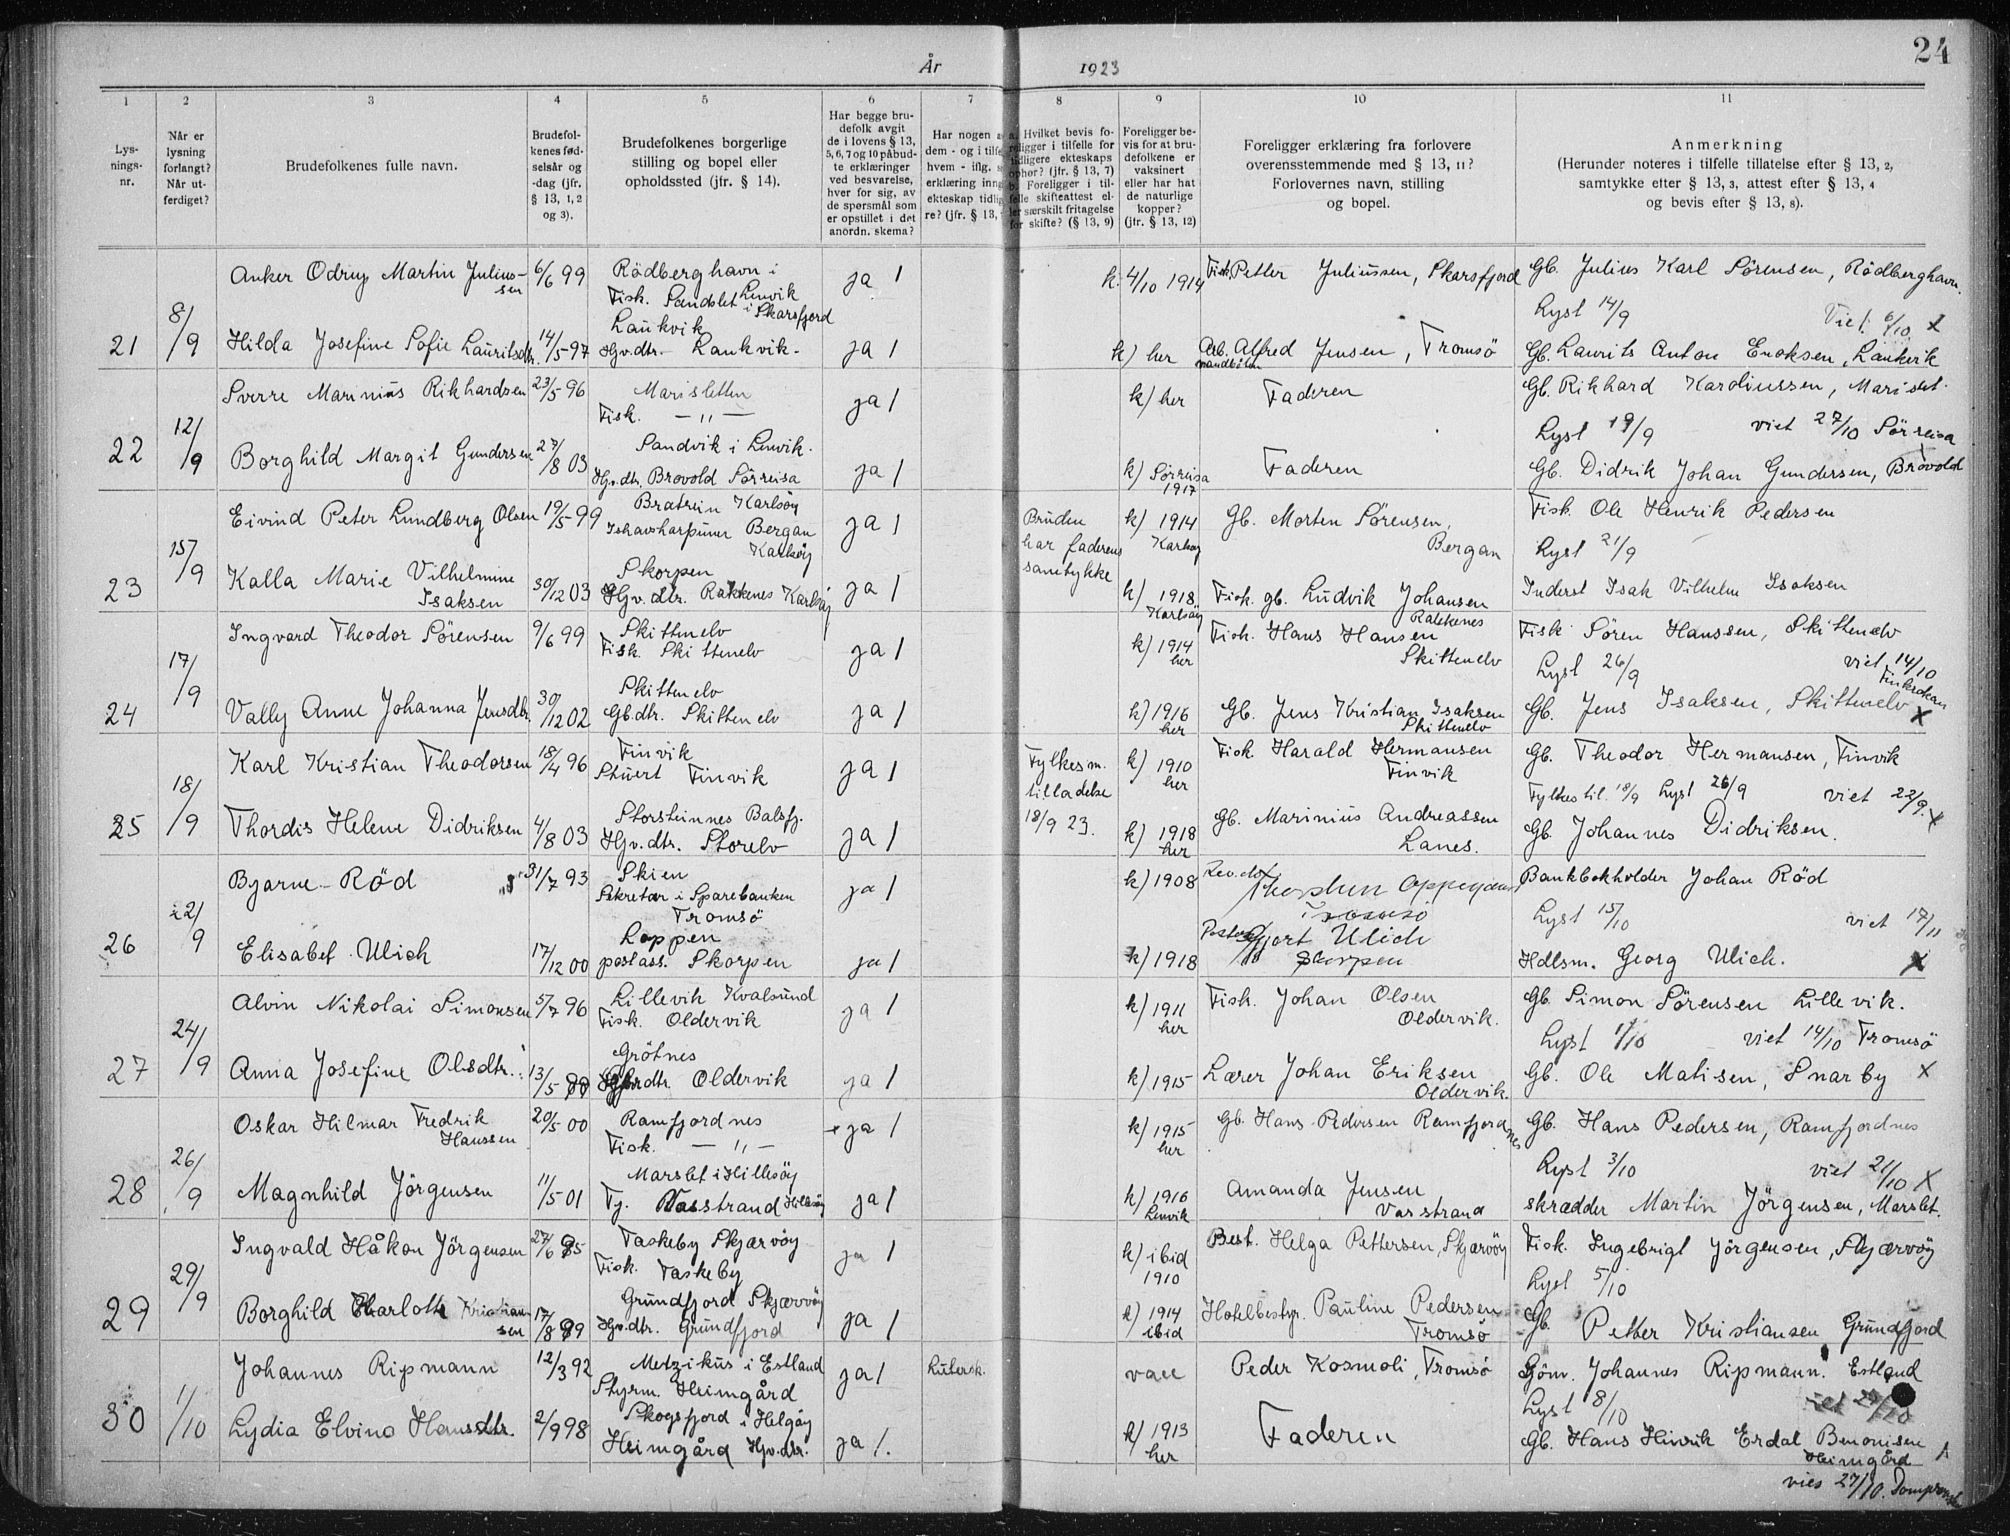 24
År 1923
1 2 3 4 5 6 7 8 9 10 11
Lysningsnr.
Når er lysning forlangt? Når utferdiget?
Brudefolkenes fulle navn.
Brudefolkenes fødselsår og -dag (jfr. § 13, 1, 2 og 3).
Brudefolkenes borgerlige stilling og bopel eller opholdssted (jfr. § 14).
Har begge brudefolk avgit de i lovens § 13, 5, 6, 7 og 10 påbudte erklæringer ved besvarelse, hver for sig, av de spørsmål som er opstillet i det anordn. skema?
Har nogen a
dem - og i tilfe
hvem - iflg. s
erklæring inng
ekteskap tidlig
re? (jfr. § 13,
a. Hvilket bevis foreligger i tilfelle for tidligere ekteskaps ophør? (jfr. § 13, 7) b. Foreligger i tilfelle skifteattest eller særskilt fritagelse for skifte? (§ 13, 9)
Foreligger bevis for at brudefolkene er vaksinert eller har hat de naturlige kopper? (jfr. § 13, 12)
Foreligger erklæring fra forlovere overensstemmende med § 13, 11? Forlovernes navn, stilling og bopel.
Anmerkning
(Herunder noteres i tilfelle tillatelse efter § 13, 2, samtykke efter § 13, 3, attest efter § 13, 4 og bevis efter § 13, 8).
Anker Odrup Martin Juliussen 6/6 99 Rödberghavn i Lenvik Fisk. Sandslet i Skarsfjord ja / k. 4/10 1914 Fisk. Petter Juliussen, Skarsfjord Gb. Julius Karl Sörensen, Rödberghavn.
21 8/9 Lyst 14/9 Viet 6/10 x
Hilda Josefine Sofie Lauritsdtr. 14/5-97 Laukvik Hjv.dtr. Laukvik. ja / k) her Arb. Alfred Jensen, Tromsö Gb. Laurits Anton Enoksen, Laukvik
Sverre Marinius Rikhardsen 23/5 96 Marisletten Fisk. — " — ja / k) her Faderen Gb. Rikhard Karoliussen, Marislet.
22 12/9 Lyst 19/9 viet 27/10 Sörreisa
Borghild Margit Gundersen 27/8 03 Sandvik i Lenvik. Hjv.dtr. Brovold Sörreisa ja / k) Sörreisa 1917 Faderen Gb. Didrik Johan Gundersen, Brovold
Eivind Peter Lundberg Olsen 19/5-99 Bratrein Karlsöy Ishavsharpuner Bergan Karlsöy ja / Bruden har faderens samtykke k) 1914 Karlsöy Gb. Morten Sörensen, Bergan Fisk. Ole Henrik Pedersen
23 15/9 Lyst 21/9
Kalla Marie Vilhelmine Isaksen 30/12 03 Skorpen Hjv. dtr. Rakkenes Karlsöy ja / k) 1918 Karlsöy Fisk. gb. Ludvik Johansen Rakkenes Inderst Isak Vilhelm Isaksen
Ingvard Theodor Sörensen 9/6 99 Skittenelv Fisk. Skittenelv ja / k) 1914 her Fisk. Hans Hansen Skittenelv Fisk Sören Hanssen, Skittenelv
24 17/9 Lyst 26/9 viet 14/10
Vally Anne Johanna Jensdtr. 30/12 02 Skittenelv Gb.dtr. Skittenelv ja / k) 1916 her Gb. Jens Kristian Isaksen Skittenelv Gb. Jens Isaksen, Skittenelv x
Karl Kristian Theodorsen 18/4 96 Finvik Stuert Finvik ja / Fylkesm. tilladelse 18/9 23. k) 1910 her Fisk. Harald Hermansen Finvik Gb. Theodor Hermansen, Finvik
25 18/9 Fylkestil. 18/9 Lyst 26/9 viet 22/9. x
Thordis Helene Didriksen 4/8 03 Storsteinnes Balsfj. Hjv.dtr. Storelv ja / k) 1918 her Gb. Marinius Andreassen Lanes. Gb. Johannes Didriksen.
Bjarne Röd 31/7 93 Skien Sekretær i Sparebanken Tromsö ja / k) 1908 Tromsö Bankbokholder Johan Röd
26 22/9 Lyst 15/10 viet 17/11
Elisabet Ulich 17/12 00 Loppen postass. Skorpen ja / k) 1918 Gjort Ulich Skorpen Hdlsm. Georg Ulich. x
Alvin Nikolai Simonsen 5/7 96 Lillevik Kvalsund Fisk. Oldervik ja / k) 1911 her Fisk. Johan Olsen Oldervik. Gb. Simon Sörensen Lillevik.
27 24/9 Lyst 1/10 viet 14/10 Tromsö
Anna Josefine Olsdtr. 13/5 00 Grötnes dtr Oldervik ja / k) 1915 Lærer Johan Eriksen Oldervik. Gb. Ole Matisen, Snarby x
Oskar Hilmar Fredrik Hanssen 20/5 00 Ramfjordnes Fisk. — " — ja / k) 1915 her Gb. Hans Pedersen Ramfjordnes Gb. Hans Pedersen, Ramfjordnes
28 26/9 Lyst 3/10 viet 21/10 x
Magnhild Jörgensen 11/5 01 Marslet i Hillesöy Tj. Vasstrand Hillesöy ja / k) 1916 Lenvik Amanda Jensen Vasstrand skrædder Martin Jörgensen, Marslet.
Ingvald Håkon Jörgensen 27/6 95 Taskeby Skjærvöy Fisk. Taskeby ja / k) ibid 1910 Best. Helga Pettersen, Skjærvöy Fisk. Ingebrigt Jörgensen, Skjærvöy
29 29/9 Lyst 5/10
Borghild Charlotte Kristiansen 17/8 99 Grundfjord Skjærvöy Hjv.dtr. Grundfjord ja / k) 1914 ibid Hotelbestyr. Pauline Pedersen Tromsö Gb. Petter Kristiansen Grundfjord
Johannes Ripmann 12/3 92 Metzikus i Estland Styrm. Heimgård ja / Lutersk. vacc Peder Kosmoli, Tromsö Johannes Ripmann. Estland
30 1/10 Lyst 8/10
Lydia Elvina Hansdtr. 2/9 98 Skogsfjord i Helgöy Heimgård Hjv.dtr. ja /. k) 1913 her Faderen Gb. Hans Hinrik Erdal Benonisen Heimgård
vies 27/10.